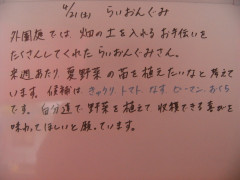 4/21(土) らいおんぐみ
外園庭では、畑の土を入れるお手伝いを
たくさんしてくれたらいおんぐみさん。
来週あたり、夏野菜の苗を植えたいなと考えて
います。候補は きゅうり、トマト、なす、ピーマン、おくら
です。自分達で野菜を植えて収穫できる喜びを
味わってほしいと願っています。